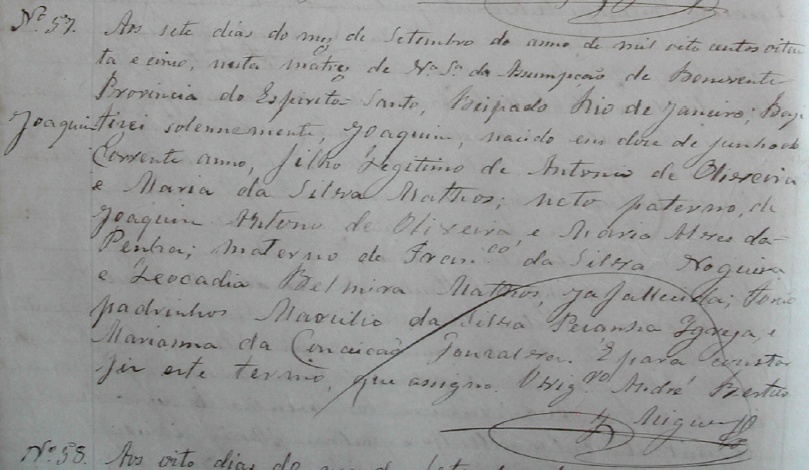 Nº 57. Aos sete dias do mez de Setembro do anno de mil oito centos oiten
ta e cinco, nesta matriz de Nª Sª da Assumpção de Benevente
Provincia do Espirito Santo, Bispado Rio de Janeiro; Bap
Joaquim tizei solennemente, Joaquim, nacido em doze de junho do
Corrente anno, filho Legitimo de Antonio de Olixeira
e Maria da Silva Mathos; neto paterno, de
Joaquim Antono de Olixeira, e Maria Alves da
Penha; materno de Franco da Silva Nogueira
e Leocadia Belmira Mathos, ja fallecida; Forão
padrinhos da Silva Peçanha e
Marianna da Conceição Gonzalves. E para constar
fiz este termo, que assigno. O Vigro André
Nº 58. Aos oito dias do